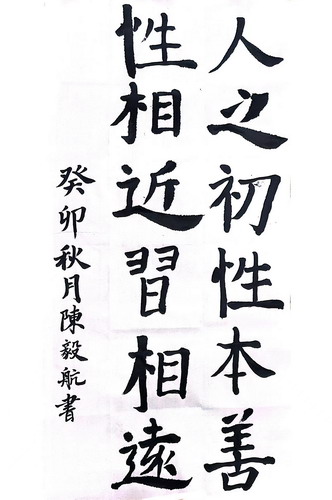 人之初性本善
性相近習相遠
癸卯秋月陳毅航書